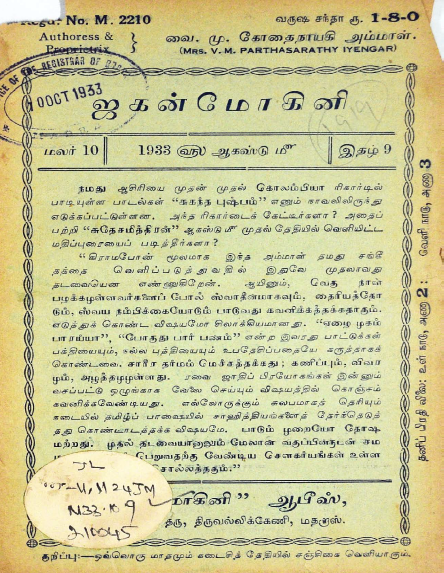 Regd. No. M. 2210
வருஷ சந்தா ரூ. 1-8-0
Authoress &
Proprietrix
வை. மு. கோதைநாயகி அம்மாள்.
(MRS. V. M. PARTHASARATHY IYENGAR)
OFFICE OF THE REGISTRAR OF
OCT 1933
ஜகன்மோகினி
1919
மலர் 10
1933 ௵ ஆகஸ்டு ௴
இதழ் 9
நமது ஆசிரியை முதன் முதல் கொலம்பியா ரிகார்டில்
பாடியுள்ள பாடல்கள் “சுகந்த புஷ்பம்” எனும் காவலிலிருந்து
எடுக்கப்பட்டுள்ளன. அந்த ரிகார்டைக் கேட்டீர்களா? அதைப்
பற்றி “சுதேசமித்திரன்” ஆகஸ்டு ௴ முதல் தேதியில் வெளியிட்ட
மதிப்புரையைப் படித்தீர்களா?
“கிராமபோன் மூலமாக இந்த அம்மாள் தமது சங்கீ
தத்தை வெளிப்படுத்துவதில் இதுவே முதலாவது
தடவையென எண்ணுகிறேன். ஆயினும், வெகு நாள்
பழக்கமுள்ளவர்களைப் போல் ஸ்வாதீனமாகவும், தைரியத்தோ
டும், ஸ்வய நம்பிக்கையோடும் பாடுவது கவனிக்கத்தக்கதாகும்.
எடுத்துக் கொண்ட விஷயமோ சிலாக்கியமானது. “ஏழை முகம்
பாரய்யா”, “போகுது பார் பணம்” என்ற இவரது பாட்டுக்கள்
பக்தியையும், நல்ல புத்தியையும் உபதேசிப்பதையே கருத்தாகக்
கொண்டவை. சாரீர தர்மம் மெச்சத்தக்கது; கணிப்பும், விவா
தமும், அழுத்தமுமுள்ளது. ரவை ஜாதிப் பிரயோகங்கள் இன்னும்
வசப்பட்டு ஒழுங்காக வேலை செய்யும் விஷயத்தில் கொஞ்சம்
கவனிக்கவேண்டியது. எல்லோருக்கும் சுலபமாகத் தெரியும்
நடையில் தமிழ்ப் பாஷையில் ஸாஹித்யங்களைத் தேர்ந்தெடுத்
தது கொண்டாடத்தக்க விஷயமே. பாடும் முறையோ தோஷ
மற்றது. முதல் தடவையானாலும் மேலான வகுப்பினருடன் சம
பெறுவதற்கு வேண்டிய சௌகர்யங்கள் உள்ள
சொல்லத்தகும்.”
மோகினி” ஆபீஸ்,
தெரு, திருவல்லிக்கேணி, மதராஸ்.
JL
N33.10.9
210045
குறிப்பு:—ஒவ்வொரு மாதமும் கடைசித் தேதியில் சஞ்சிகை வெளியாகும்.
தனிப் பிரதி விலை: உள் நாடு, அணா 2: வெளி நாடு, அணா 3